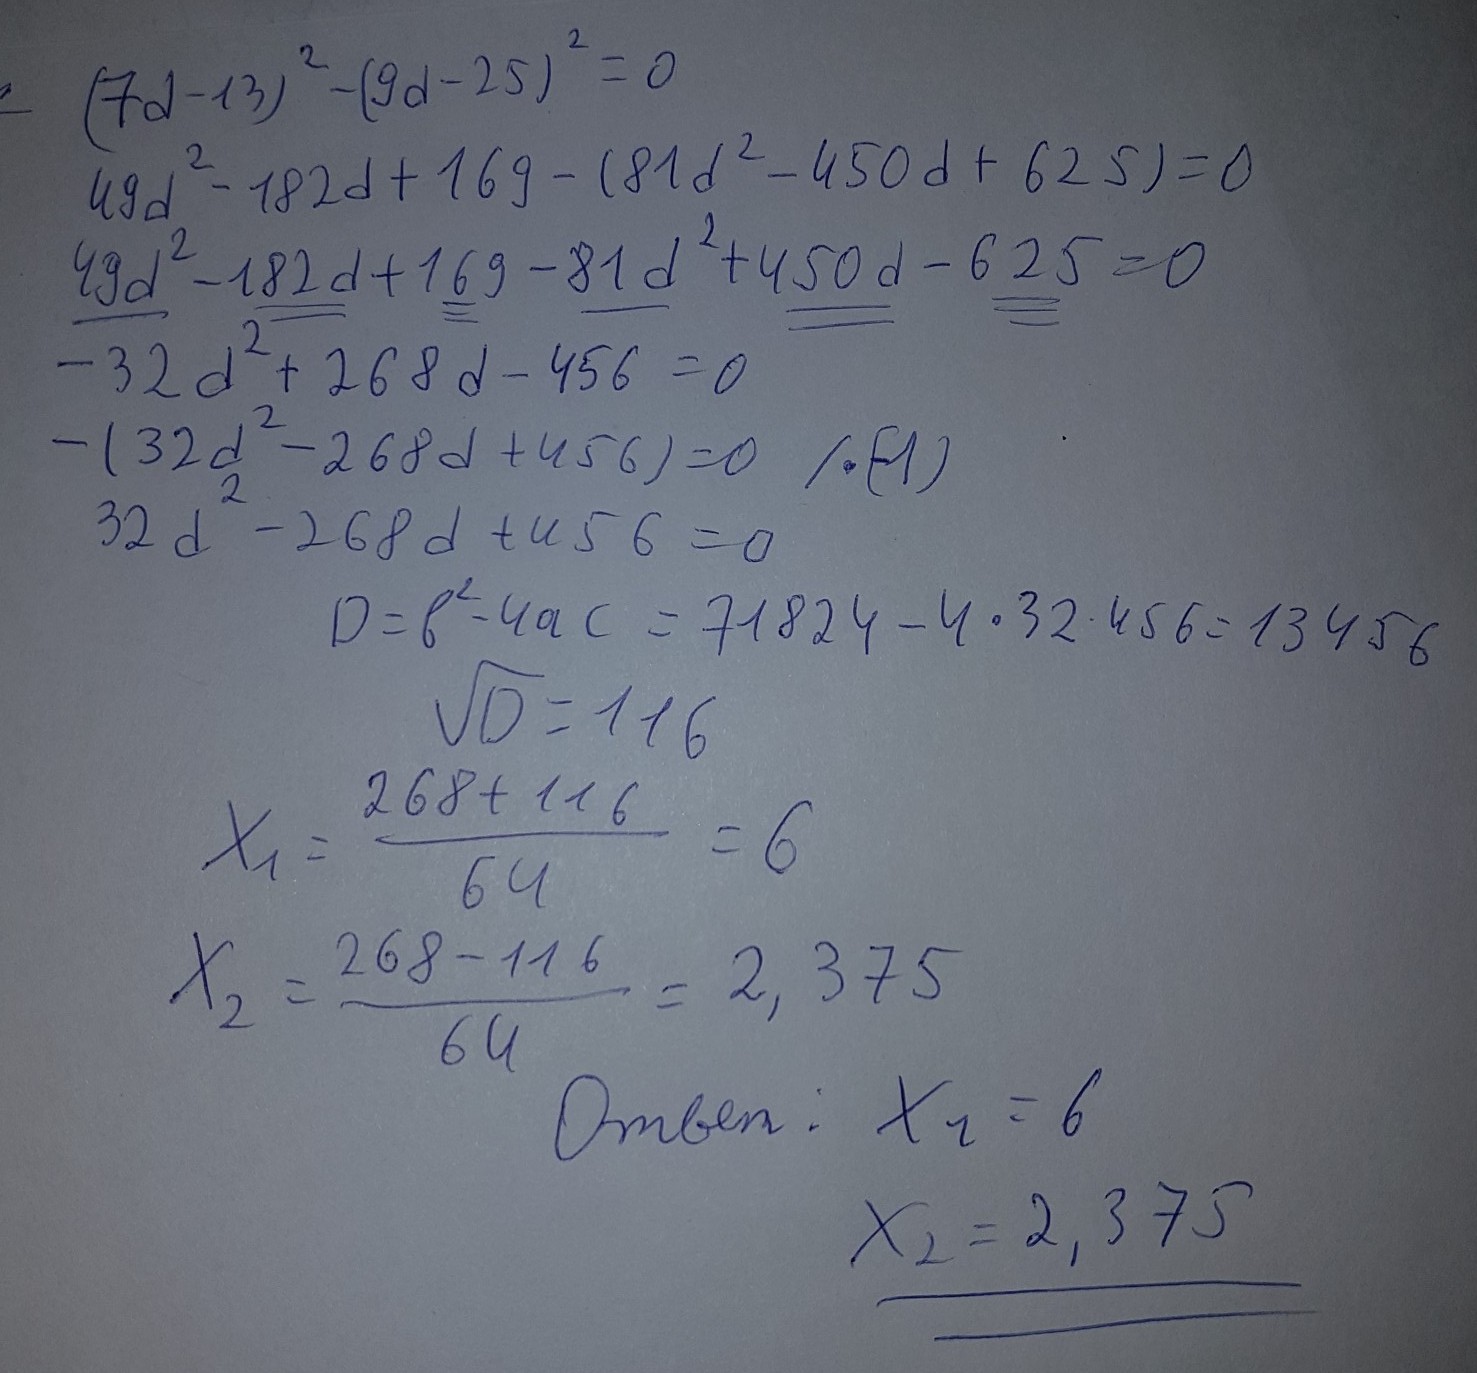 (7d-13)²-(9d-25)²=0
49d²-182d+169-(81d²-450d+625)=0
49d²-182d+169-81d²+450d-625=0
-32d²+268d-456=0
-(32d²-268d+456)=0 /·(-1)
32d²-268d+456=0
D=b²-4ac=71824-4·32·456=13456
√D=116
X₁=(268+116)/64=6
X₂=(268-116)/64=2,375
Ответ: X₁=6
X₂=2,375